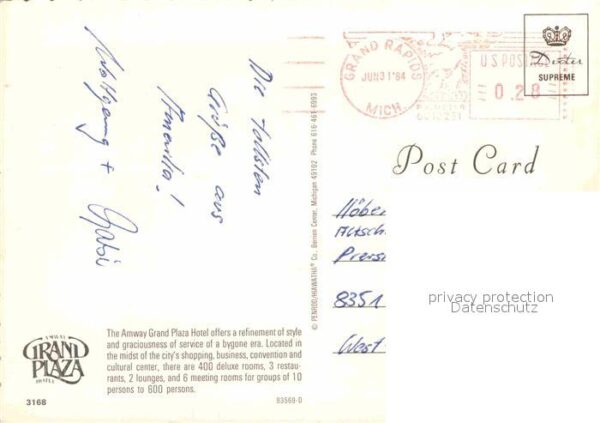 Die tollsten
Grüße aus
Amerika!
Wolfgang +
Gabi
GRAND RAPIDS
JUN 31 '84
MICH
U.S. POSTAGE
0.28
Dexter
SUPREME
Post Card
8351
West
privacy protection
Datenschutz
© PENROD/HIAWATHA® Co., Berrien Center, Michigan 49102 Phone 616-461-6993
AMWAY
GRAND
PLAZA
HOTEL
The Amway Grand Plaza Hotel offers a refinement of style
and graciousness of service of a bygone era. Located in
the midst of the city's shopping, business, convention and
cultural center, there are 400 deluxe rooms, 3 restau-
rants, 2 lounges, and 6 meeting rooms for groups of 10
persons to 600 persons.
3168
83569-D